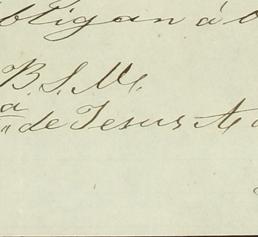 obligan á
B. S. M.
a de Jesus